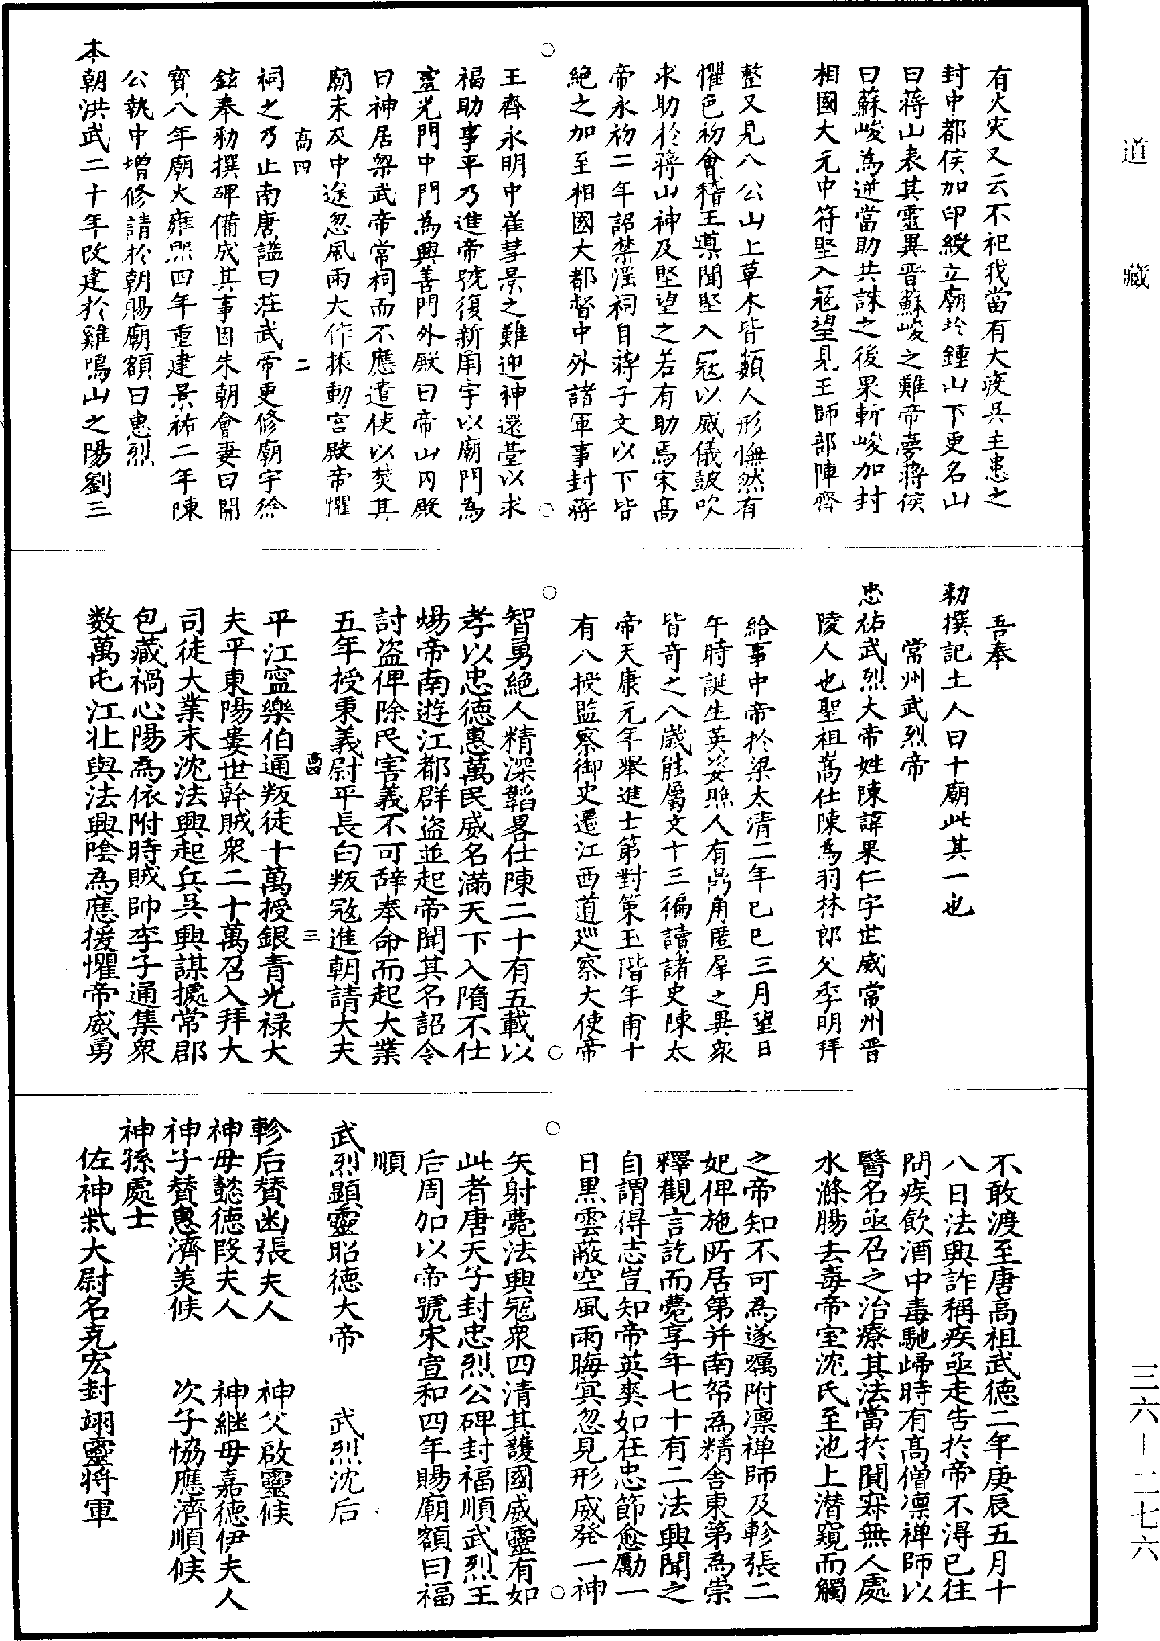 道藏
三六—二七六
有火灾又云不祀我當有大疫吳主患之
封中都侯加印綬立廟於鍾山下更名山
曰蔣山表其靈異晉蘇峻之難帝夢蔣侯
曰蘇峻為逆當助共誅之後果斬峻加封
相國大元中符堅入冦望見王師部陣齊
整又見八公山上草木皆類人形憮然有
懼色初會稽王導聞堅入冦以威儀鼓吹
求助於蔣山神及堅望之若有助焉宋高
帝永初二年詔禁淫祠自蔣子文以下皆
絶之加至相國大都督中外諸軍事封蔣
王齊永明中崔彗景之難迎神還臺以求
福助事平乃進帝號復新廟宇以廟門為
靈光門中門為興善門外殿曰帝山內殿
曰神居梁武帝常祠而不應遣使以焚其
廟未及中途忽風雨大作振動宮殿帝懼
高四 二
祠之乃止南唐謚曰莊武帝更修廟宇徐
鉉奉勑撰碑備成其事國朱朝會妻曰開
寳八年廟火雍熙四年重建景祐二年陳
公執中增修請於朝賜廟額曰惠烈
本朝洪武二十年改建於雞鳴山之陽劉三
吾奉
勑撰記土人曰十廟此其一也
常州武烈帝
忠祐武烈大帝姓陳諱果仁字世威常州晋
陵人也聖祖嵩仕陳為羽林郎父季明拜
給事中帝於梁太清二年己巳三月望日
午時誕生英姿照人有㒵角匿犀之異衆
皆奇之八歲能屬文十三徧讀諸史陳太
帝天康元年舉進士第對策玉階年甫十
有八授監察御史遷江西道巡察大使帝
智勇絶人精深韜畧仕陳二十有五載以
孝以忠德惠萬民威名滿天下入隋不仕
煬帝南遊江都群盜並起帝聞其名詔令
討盗俾除民害義不可辞奉命而起大業
五年授秉義尉平長白叛冦進朝請大夫
高四 三
平江寧樂伯通叛徒十萬授銀青光禄大
夫平東陽婁世幹賊衆二十萬召入拜大
司徒大業末沈法興起兵吳興謀據常郡
包藏禍心陽為依附時賊帥李子通集衆
数萬屯江北與法興陰為應援懼帝威勇
不敢渡至唐高祖武德二年庚辰五月十
八日法興詐稱疾亟走告於帝不淂已往
問疾飲酒中毒馳歸時有高僧凛禅師以
醫名亟召之治療其法當於閴寐無人處
水滌腸去毒帝室沈氏至池上潜窺而觸
之帝知不可為遂囑附凛禅師及軫張二
妃俾施所居第并南帑為精舍東第為崇
釋觀言訖而薨享年七十有二法興聞之
自謂得志豈知帝英爽如在忠節愈勵一
日黒雲蔽空風雨晦冥忽見形威發一神
矢射薨法興冦衆四清其護國威靈有如
此者唐天子封忠烈公碑封福順武烈王
后周加以帝號宋宣和四年賜廟額曰福
順
武烈顯靈昭德大帝 武烈沈后
軫后賛幽張夫人 神父啟靈候
神母懿德叚夫人 神継母嘉德伊夫人
神子賛惠濟美候 次子恊應濟順候
神孫處士
佐神㷉大尉名克宏封翊靈将軍